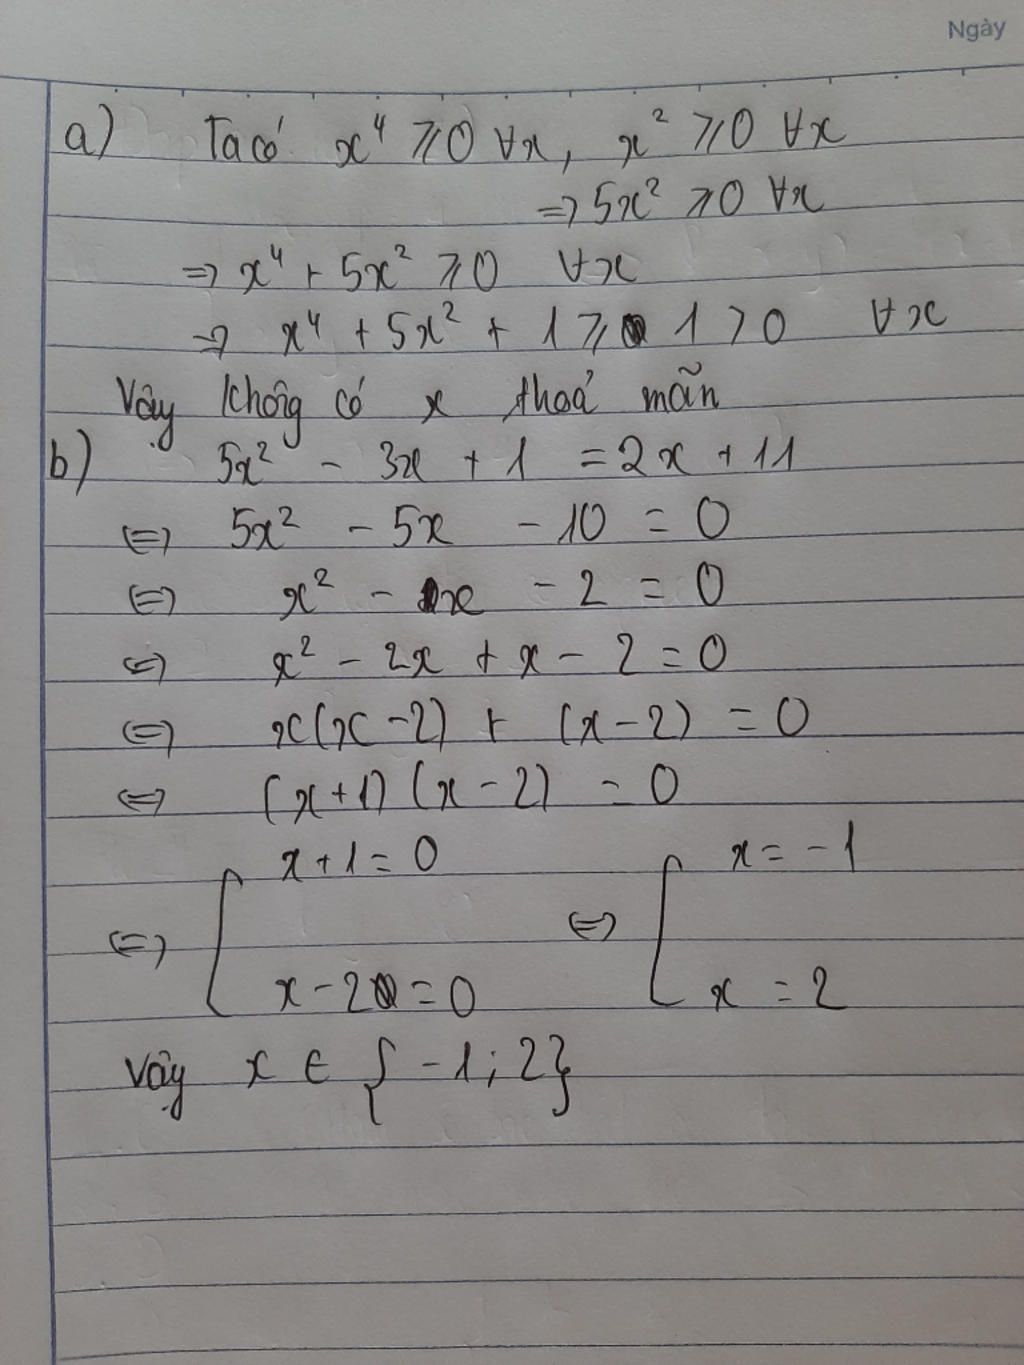 Ngày
a) Ta có x⁴ ⩾0 ∀x, x² ⩾0 ∀x
=> 5x² ⩾0 ∀x
=> x⁴ + 5x² ⩾0 ∀x
=> x⁴ + 5x² + 1 ⩾ 1 > 0 ∀x
Vậy không có x thoả mãn
b) 5x² - 3x + 1 = 2x + 11
<=> 5x² - 5x - 10 = 0
<=> x² - x - 2 = 0
<=> x² - 2x + x - 2 = 0
<=> x(x-2) + (x-2) = 0
<=> (x+1) (x-2) = 0
<=> [ x+1=0 <=> [ x= -1
x-2=0 x = 2
Vậy x ∈ { -1; 2}